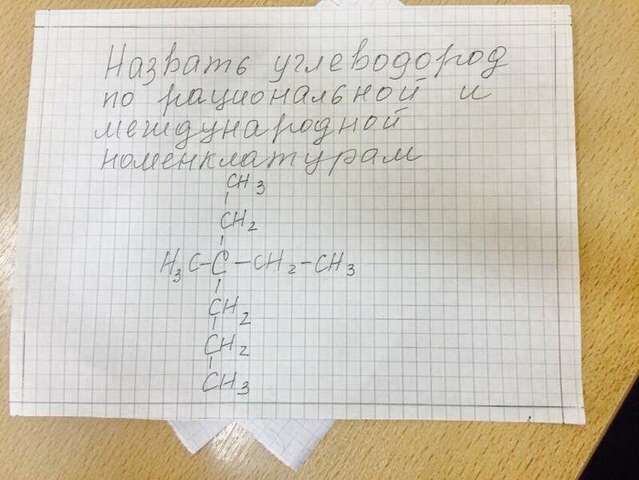 Назвать углеводород
по рациональной и
международной
номенклатурам
CH3
CH2
H3C-C-CH2-CH3
CH2
CH2
CH3